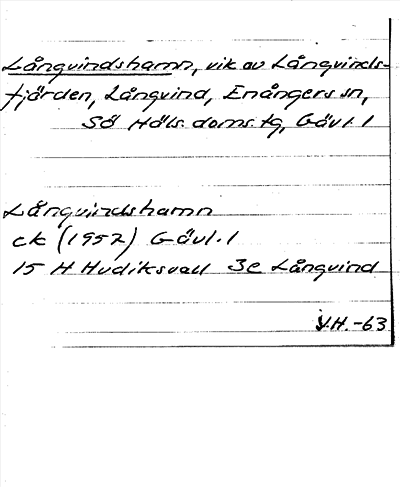 Långvindshamn, vik av Långvinds-
fjärden, Långvind, Enångers sn,
Sö Häls. doms. tg, Gävl. l
Långvindshamn
ek (1952) Gävl. l
15 H Hudiksvall 3c Långvind
V.H. -63